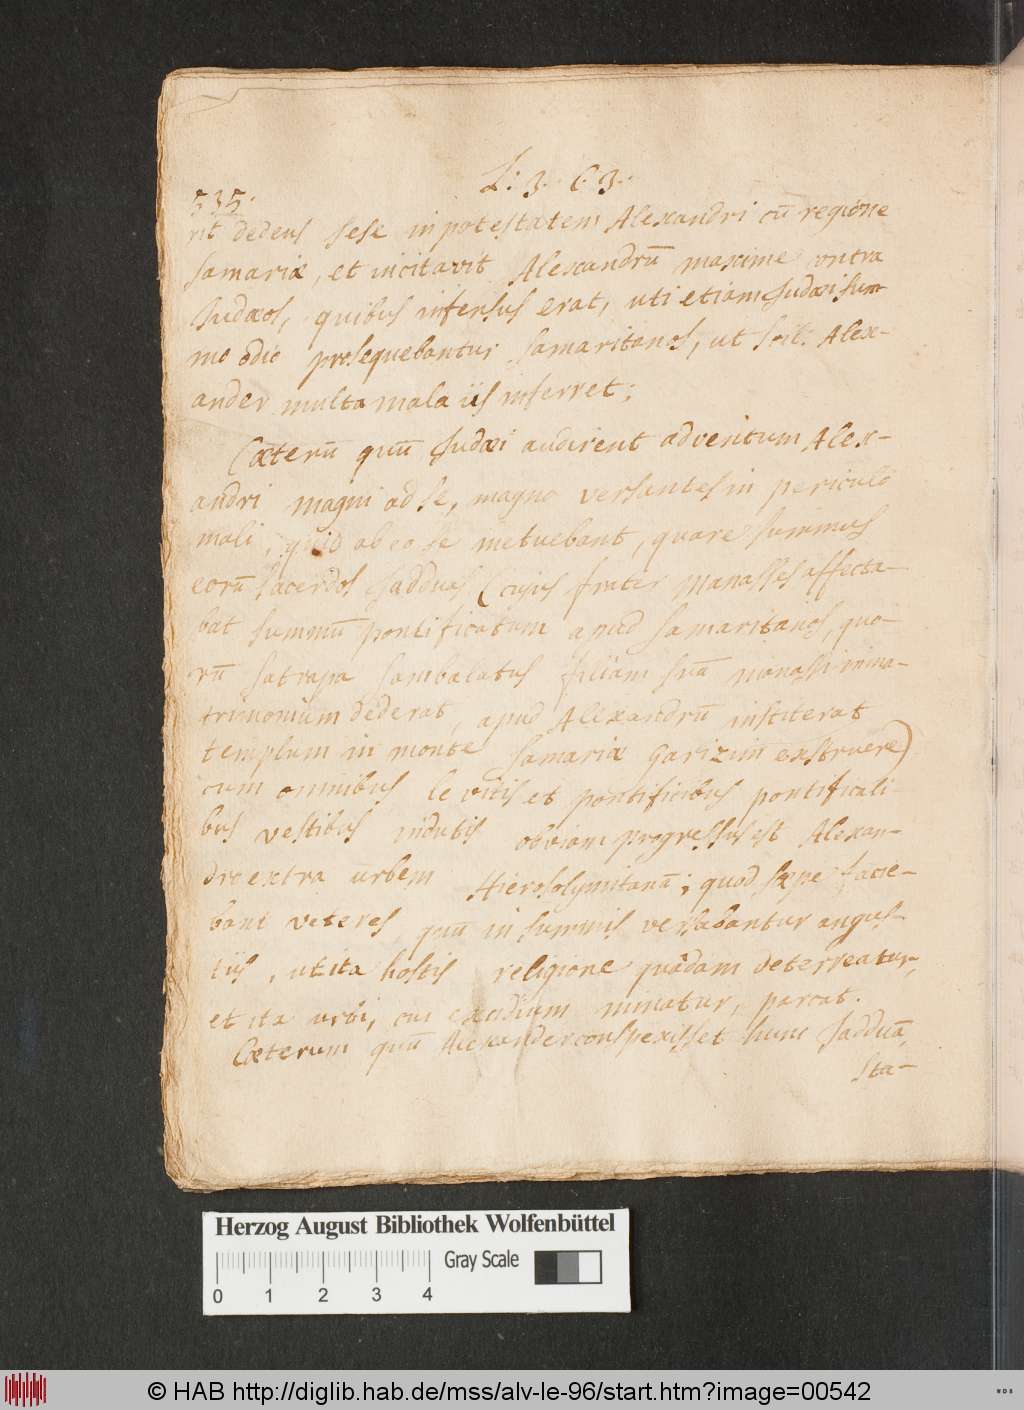 L: 3. C. 3.
535.
rit dedens sese in potestatem Alexandri cū regione
Samariæ, et incitavit Alexandrū maxime contra
Judæos, quibus infensus erat, uti etiam Judæi sum
mo odio prosequebantur Samaritanos, ut scil: Alex-
ander multa mala iis inferret;
Cæterū quū Judæi audirent adventum Alex-
andri magni ad se, magno versantes in periculo
mali, quod ab eo se metuebant, quare summus
eorū sacerdos Jadduas (cujus frater Manasses affecta-
bat summū pontificatum apud Samaritanos, quo-
rū satrapa Sambalatus filiam suā Manassi in ma-
trimonium dederat, apud Alexandrū institerat
templum in monte Samariæ Garizim exstruere)
cum omnibus levitis et pontificibus pontificali-
bus vestibus indutis obviam progressus est Alexan-
dro extra urbem Hierosolymitanā; quod sæpe facie-
bant veteres, quū in summis versabantur angus-
tiis, ut ita hostis religione quâdam deterreatur,
et ita urbi, cui excidium minatur, parcat.
Cæterum quū Alexander conspexisset hunc Jadduā,
sta-
Herzog August Bibliothek Wolfenbüttel
Gray Scale
0 1 2 3 4
© HAB http://diglib.hab.de/mss/alv-le-96/start.htm?image=00542